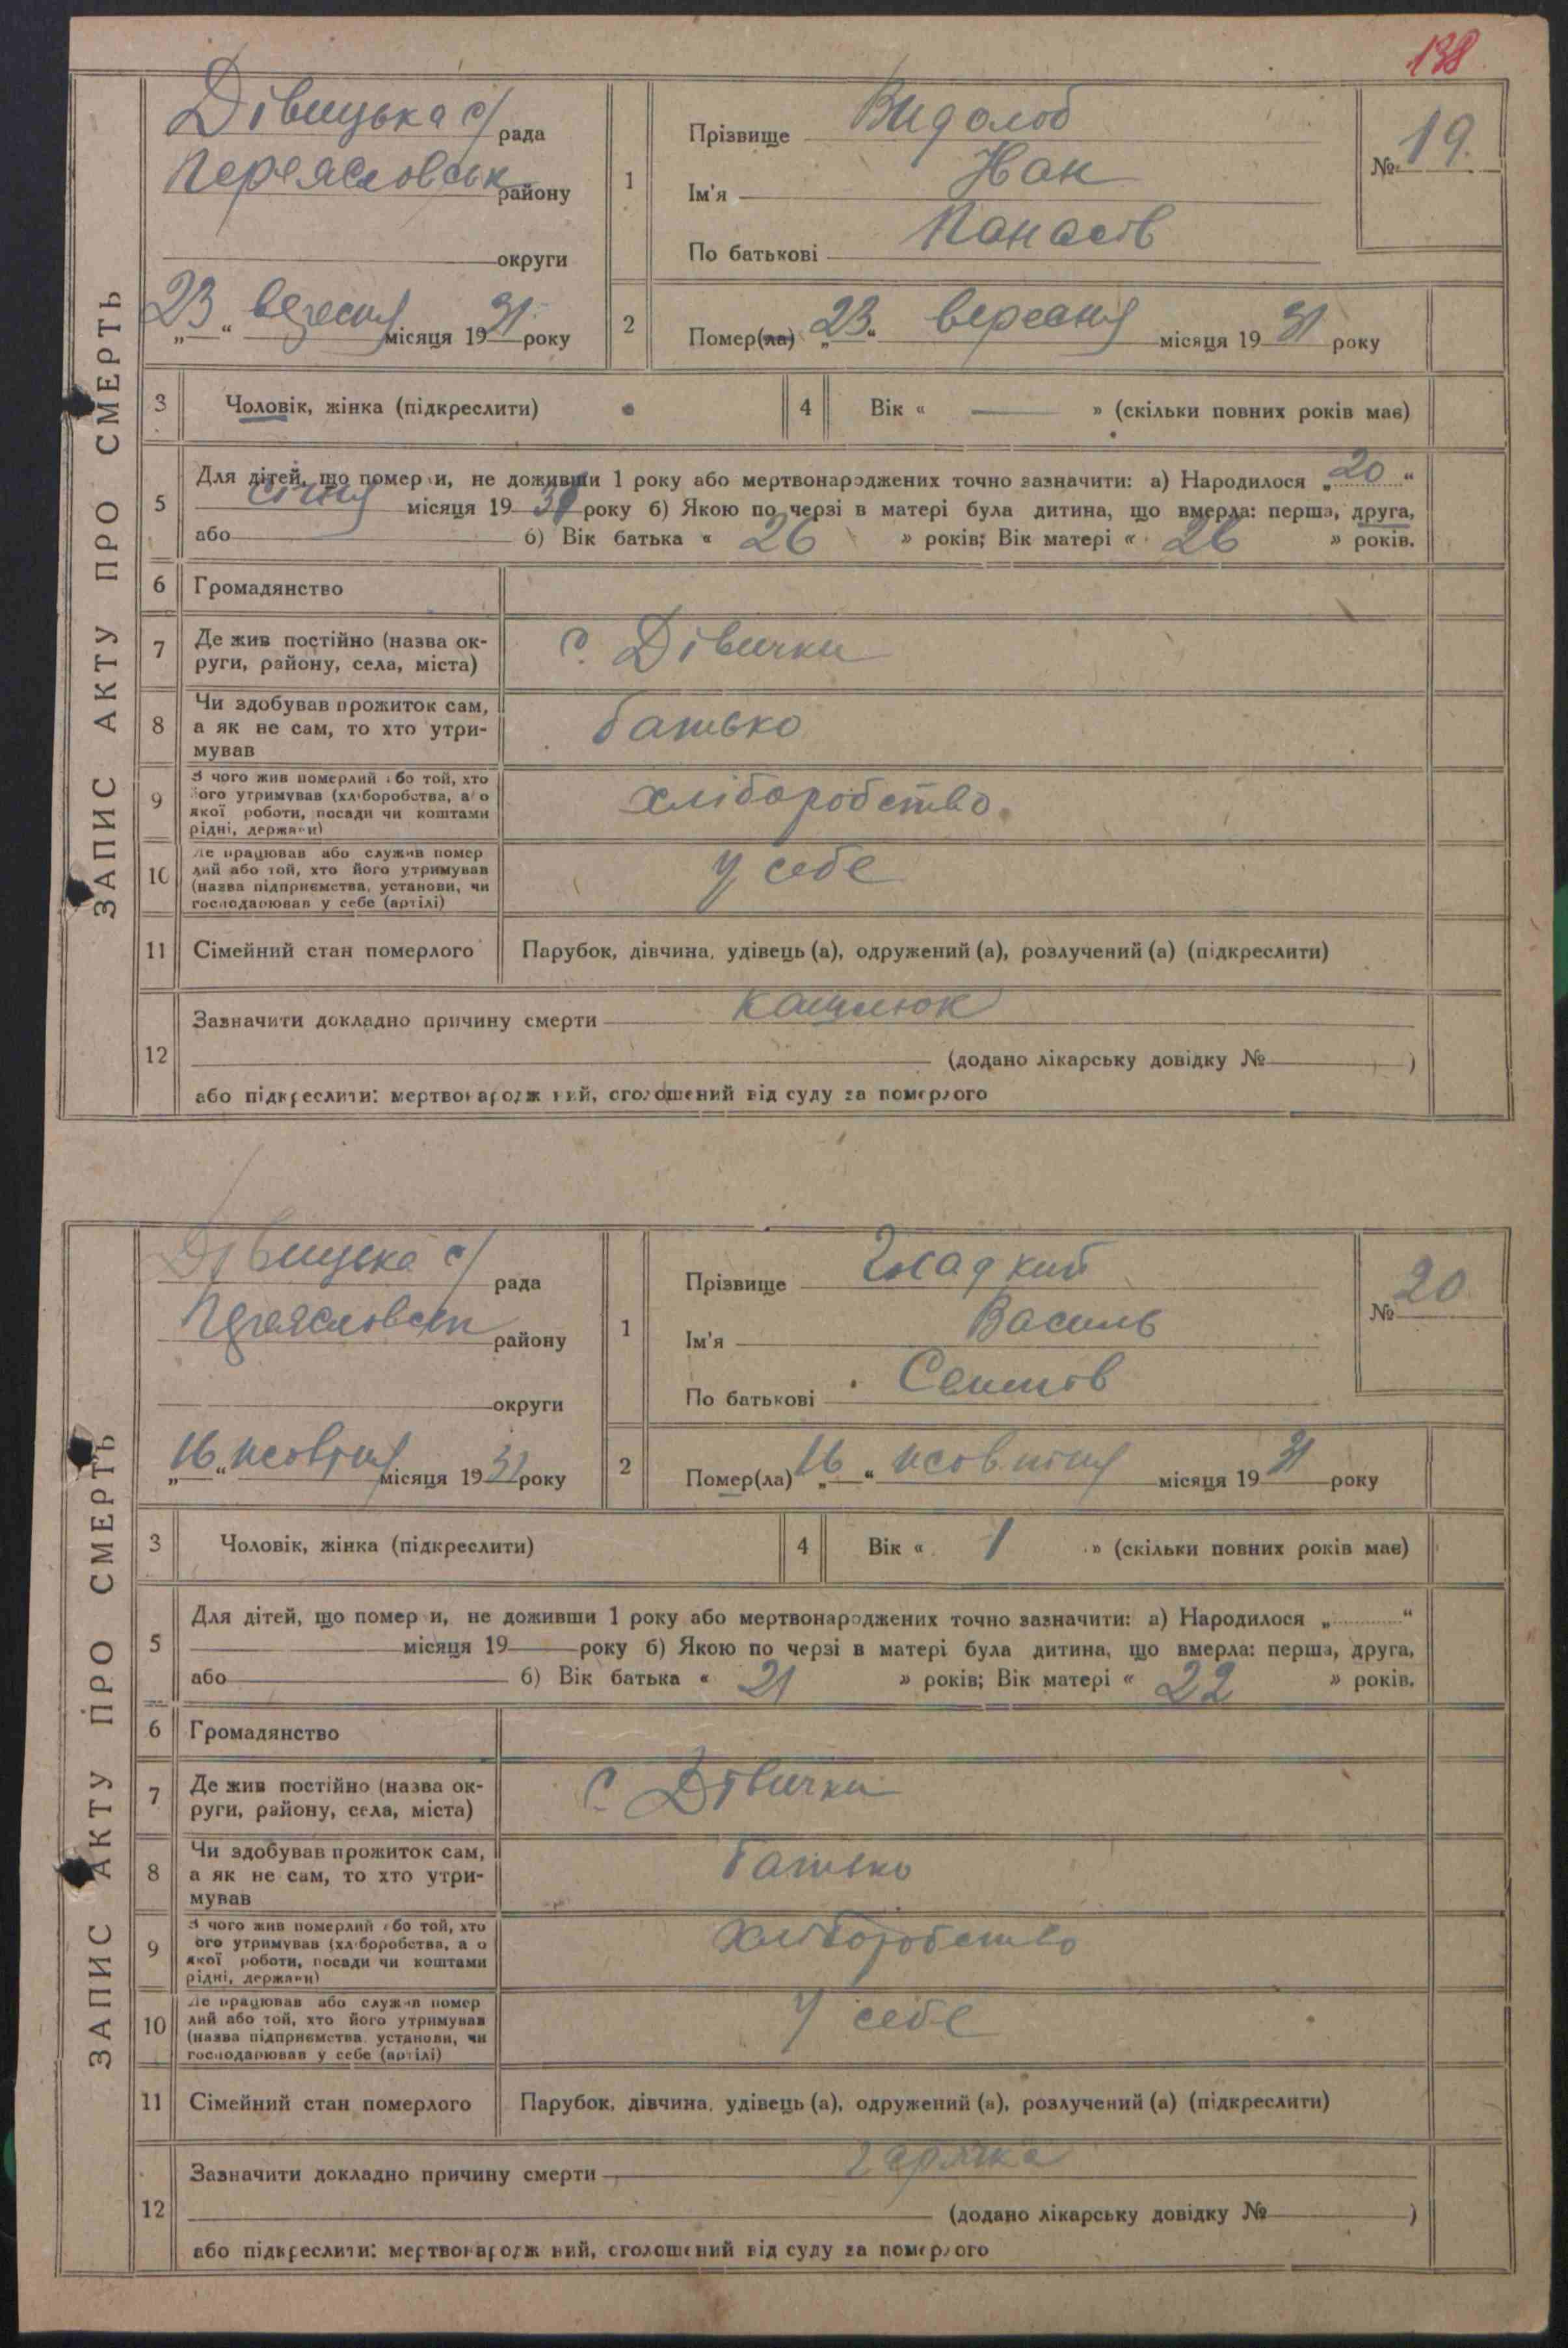 138
ЗАПИС АКТУ ПРО СМЕРТЬ
Дівицька с/ рада
Переясловськ району
округи
„23“ вересня місяця 1931 року
1
Прізвище Видолоб
Ім'я Іван
По батькові Панасів
№ 19.
2
Помер(ла) „23“ вересня місяця 1931 року
3 Чоловік, жінка (підкреслити)
4 Вік « — » (скільки повних років має)
5
Для дітей, що померли, не доживши 1 року або мертвонароджених точно зазначити: а) Народилося „20“
січня місяця 1931 року б) Якою по черзі в матері була дитина, що вмерла: перша, друга,
або б) Вік батька « 26 » років; Вік матері « 26 » років.
6 Громадянство
7 Де жив постійно (назва ок-
руги, району, села, міста)
с. Дівички
8 Чи здобував прожиток сам,
а як не сам, то хто утри-
мував
батько
9 З чого жив померлий або той, хто
його утримував (хліборобства, або
якої роботи, посади чи коштами
рідні, держави)
хліборобство.
10 Де працював або служив помер
лий або той, хто його утримував
(назва підприємства, установи, чи
господарював у себе (артілі)
у себе
11 Сімейний стан померлого
Парубок, дівчина, удівець (а), одружений (а), розлучений (а) (підкреслити)
12
Зазначити докладно причину смерти кашлюк
(додано лікарську довідку № )
або підкреслити: мертвонароджений, оголошений від суду за померлого
ЗАПИС АКТУ ПРО СМЕРТЬ
Дівицька с/ рада
Переясловськ району
округи
„16“ жовтня місяця 1931 року
1
Прізвище Гладкий
Ім'я Василь
По батькові Семенів
№ 20
2
Помер(ла) „16“ жовтня місяця 1931 року
3 Чоловік, жінка (підкреслити)
4 Вік « 1 » (скільки повних років має)
5
Для дітей, що померли, не доживши 1 року або мертвонароджених точно зазначити: а) Народилося „ “
місяця 19 року б) Якою по черзі в матері була дитина, що вмерла: перша, друга,
або б) Вік батька « 21 » років; Вік матері « 22 » років.
6 Громадянство
7 Де жив постійно (назва ок-
руги, району, села, міста)
с. Дівички
8 Чи здобував прожиток сам,
а як не сам, то хто утри-
мував
батько
9 З чого жив померлий або той, хто
його утримував (хліборобства, або
якої роботи, посади чи коштами
рідні, держави)
хліборобство
10 Де працював або служив помер
лий або той, хто його утримував
(назва підприємства, установи, чи
господарював у себе (артілі)
у себе
11 Сімейний стан померлого
Парубок, дівчина, удівець (а), одружений (а), розлучений (а) (підкреслити)
12
Зазначити докладно причину смерти гарячка
(додано лікарську довідку № )
або підкреслити: мертвонароджений, оголошений від суду за померлого